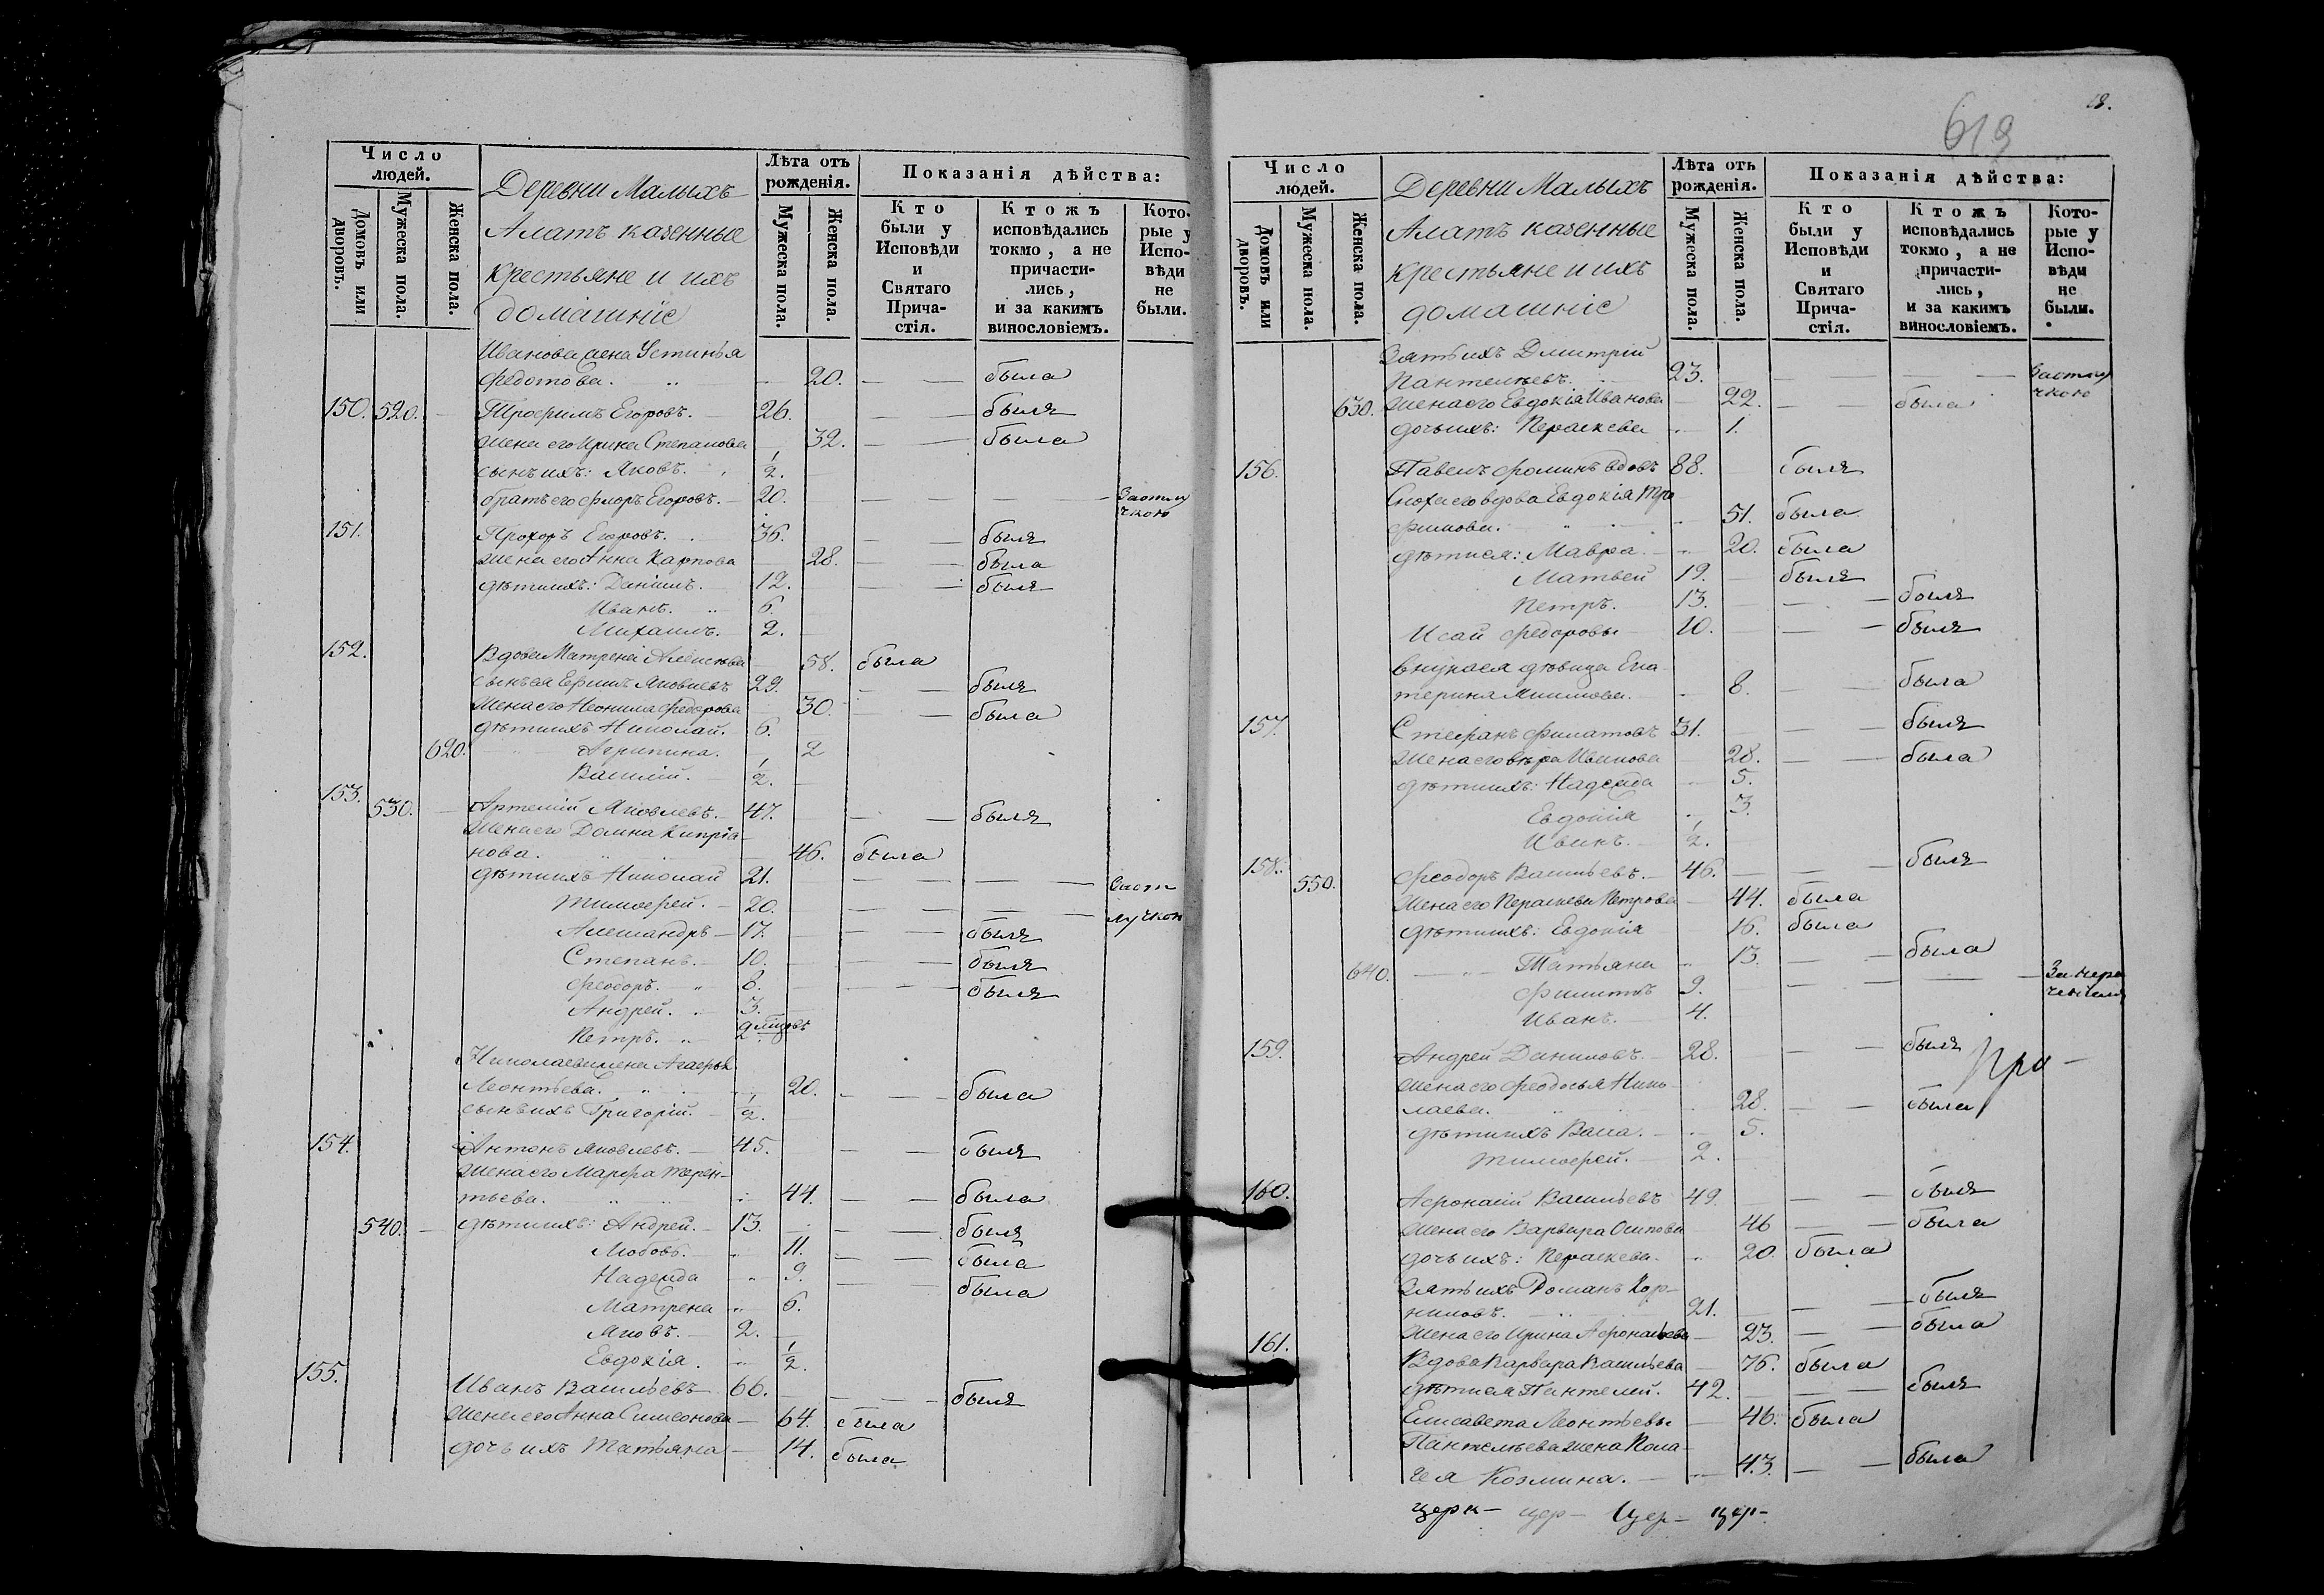 Число людей.
Домовъ или дворовъ.
Мужеска пола.
Женска пола.
Деревни Малыхъ
Алатъ казенные
крестьяне и ихъ
домашніе
Лѣта отъ рожденія.
Мужеска пола.
Женска пола.
Показанія дѣйства:
Кто были у Исповѣди и Святаго Причастія.
Ктожъ исповѣдались токмо, а не причастились, и за какимъ винословіемъ.
Которые у Исповѣди не были.
Иванова жена Устинья
Федотова. 20. была
150. 520. Трофимъ Егоровъ. 26. былъ
жена его Ирина Степанова 32. была
сынъ ихъ: Яковъ. 1/2.
братъ его Флоръ Егоровъ. 20. Заотлу
чкою
151. Прохоръ Егоровъ. 36. былъ
жена его Анна Карпова 28. была
дѣти ихъ: Даніилъ. 12. былъ
Иванъ. 6.
Михаилъ. 2.
152. Вдова Матрена Алексѣева 58. была
сынъ ея Ефимъ Яковлевъ 29. былъ
жена его Неонила Федорова 30. была
дѣти ихъ Николай. 6.
620. Агрипина. 2
Василій. 1/2.
153. 530. Артемій Яковлевъ. 47. былъ
жена его Домна Кипріа-
нова. 46. была
дѣти ихъ Николай 21. Заот
Тимофей. 20. лучкою
Александръ 17. былъ
Степанъ. 10. былъ
Феодоръ. 8. былъ
Андрей. 3.
Петръ. 2
Николаева жена Агафья
Леонтьева. 20. была
сынъ ихъ Григорій. 1/2.
154. Антонъ Яковлевъ. 45. былъ
жена его Марфа Терен-
тьева. 44. была
540. дѣти ихъ: Андрей. 13. былъ
Любовь. 11. была
Надежда 9. была
Матрена 6.
Яковъ. 2.
Евдокія. 1/2.
155. Иванъ Васильевъ 66. былъ
жена его Анна Симеонова 64. была
дочь ихъ Татьяна 14. была
619
18.
Число людей.
Домовъ или дворовъ.
Мужеска пола.
Женска пола.
Деревни Малыхъ
Алатъ казенные
крестьяне и ихъ
домашніе
Лѣта отъ рожденія.
Мужеска пола.
Женска пола.
Показанія дѣйства:
Кто были у Исповѣди и Святаго Причастія.
Ктожъ исповѣдались токмо, а не причастились, и за какимъ винословіемъ.
Которые у Исповѣди не были.
Зять ихъ Дмитрій
Пантелѣевъ. 23. Заотлу
630. жена его Евдокія Иванова 22. была чкою
дочь ихъ: Параскева 1.
156. Павелъ Фоминъ вдовъ 88. былъ
Сноха его вдова Евдокія Тро
фимова. 51. была
дѣти ея: Мавра. 20. была
Матвей 19. былъ
Петръ. 13. былъ
Исай Федоровы 10. былъ
внука ея дѣвица Ека-
терина 8. была
157. Стефанъ Филатовъ 31. былъ
жена его Вѣра Иванова 28. была
дѣти ихъ: Надежда 5.
Евдокія 3.
Иванъ. 1/2.
158. 550. Феодоръ Васильевъ. 46. былъ
жена его Параскева Петрова 44. была
дѣти ихъ: Евдокія 16. была
640. Татьяна 13. была
Филиппъ 9. За нера
Иванъ. 4.
159. Андрей Даниловъ. 28. былъ
Пра-
жена его Феодосья Нико-
лаева. 28. была
дѣти ихъ Васса. 5.
Тимофей. 2.
160. Афонасій Васильевъ 49. былъ
жена его Варвара Осипова 46 была
дочь ихъ: Параскева. 20. была
Зять ихъ Романъ Кор-
ниловъ. 21. былъ
жена его Ирина Афонасьева 23. была
161. Вдова Варвара Васильева 76. была
дѣти ея Пантелей. 42. былъ
Елисавета Леонтьевы 46. была
Пантелѣева жена Пела-
гея Козмина. 43. была
церк- цер- Цер- цер-